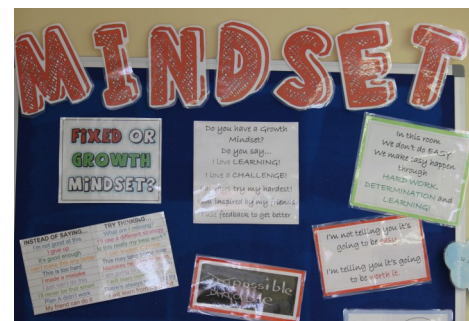 MINDSET
FIXED OR
GROWTH
MINDSET?
Do you have a Growth
Mindset?
Do you say...
I love LEARNING!
I love a CHALLENGE!
try my hardest!
am inspired by my friends
feedback to get better
In this room
We don't do EASY
We make easy happen
through
HARD WORK,
DETERMINATION and
LEARNING!
INSTEAD OF SAYING...
I'm not good at this
I give up
It's good enough
This is too hard
I made a mistake
I just can't do this
I'll never be that smart
Plan A didn't work
My friend can do it
TRY THINKING...
What am I missing?
I'll use a different strategy
Is this really my best work?
This may take some time
Mistakes help me
I'm not telling you it's
going to be easy
I'm telling you it's going
to be worth it.